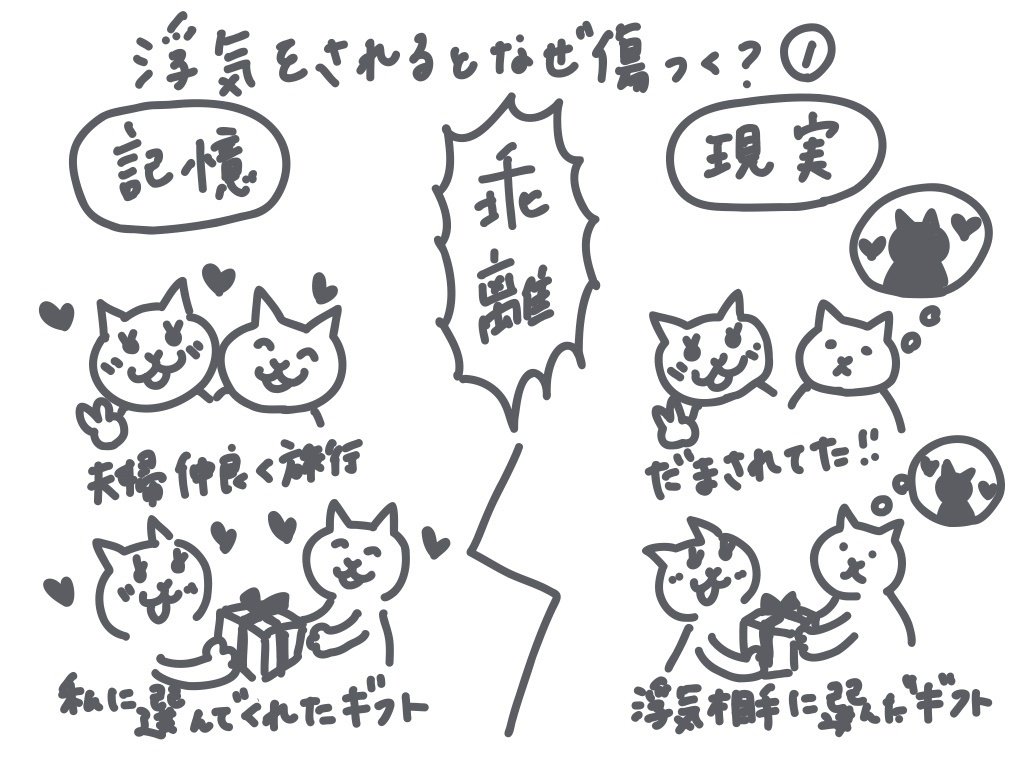 浮気をされるとなぜ傷つく?①
記憶
乖離
現実
夫婦仲良く旅行
だまされてた!!
私に
選んでくれたギフト
浮気相手に選んだギフト